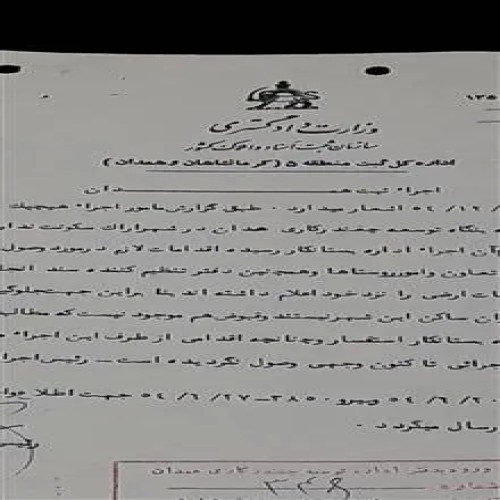 ۱۳۵
وزارت دادگستری
سازمان ثبت اسناد و املاک کشور
اداره کل ثبت منطقه ۵ (کرمانشاهان و همدان)
اجراء ثبت همدان
اشعار میدارد - طبق گزارش مامور اجراء هیچیک
بنگاه توسعه چغندرکاری همدان در شهر اراک سکونت
اجراء اداره بستانکار رسیده اقدامات لازم در مورد وصول
تعاون و امور روستاها و همچنین دفتر تنظیم کننده سند
ارضی را نزد خود اعلام داشته اند بنا براین جهت
ساکن این شهر نیستند و قبوض هم موجود نیست که
بستانکار استفسار و چنانچه اقدامی از طرف این اجراء
اجرائی تا کنون وجهی وصول نگردیده است - رئیس اجرا
۵۴/۶/۲۰ و پیرو ۳۸۵۰-۵۴/۶/۲۷ جهت اطلاع
ارسال میگردد .
ورود بدفتر اداره توسعه چغندرکاری همدان
شماره ۳۴۸